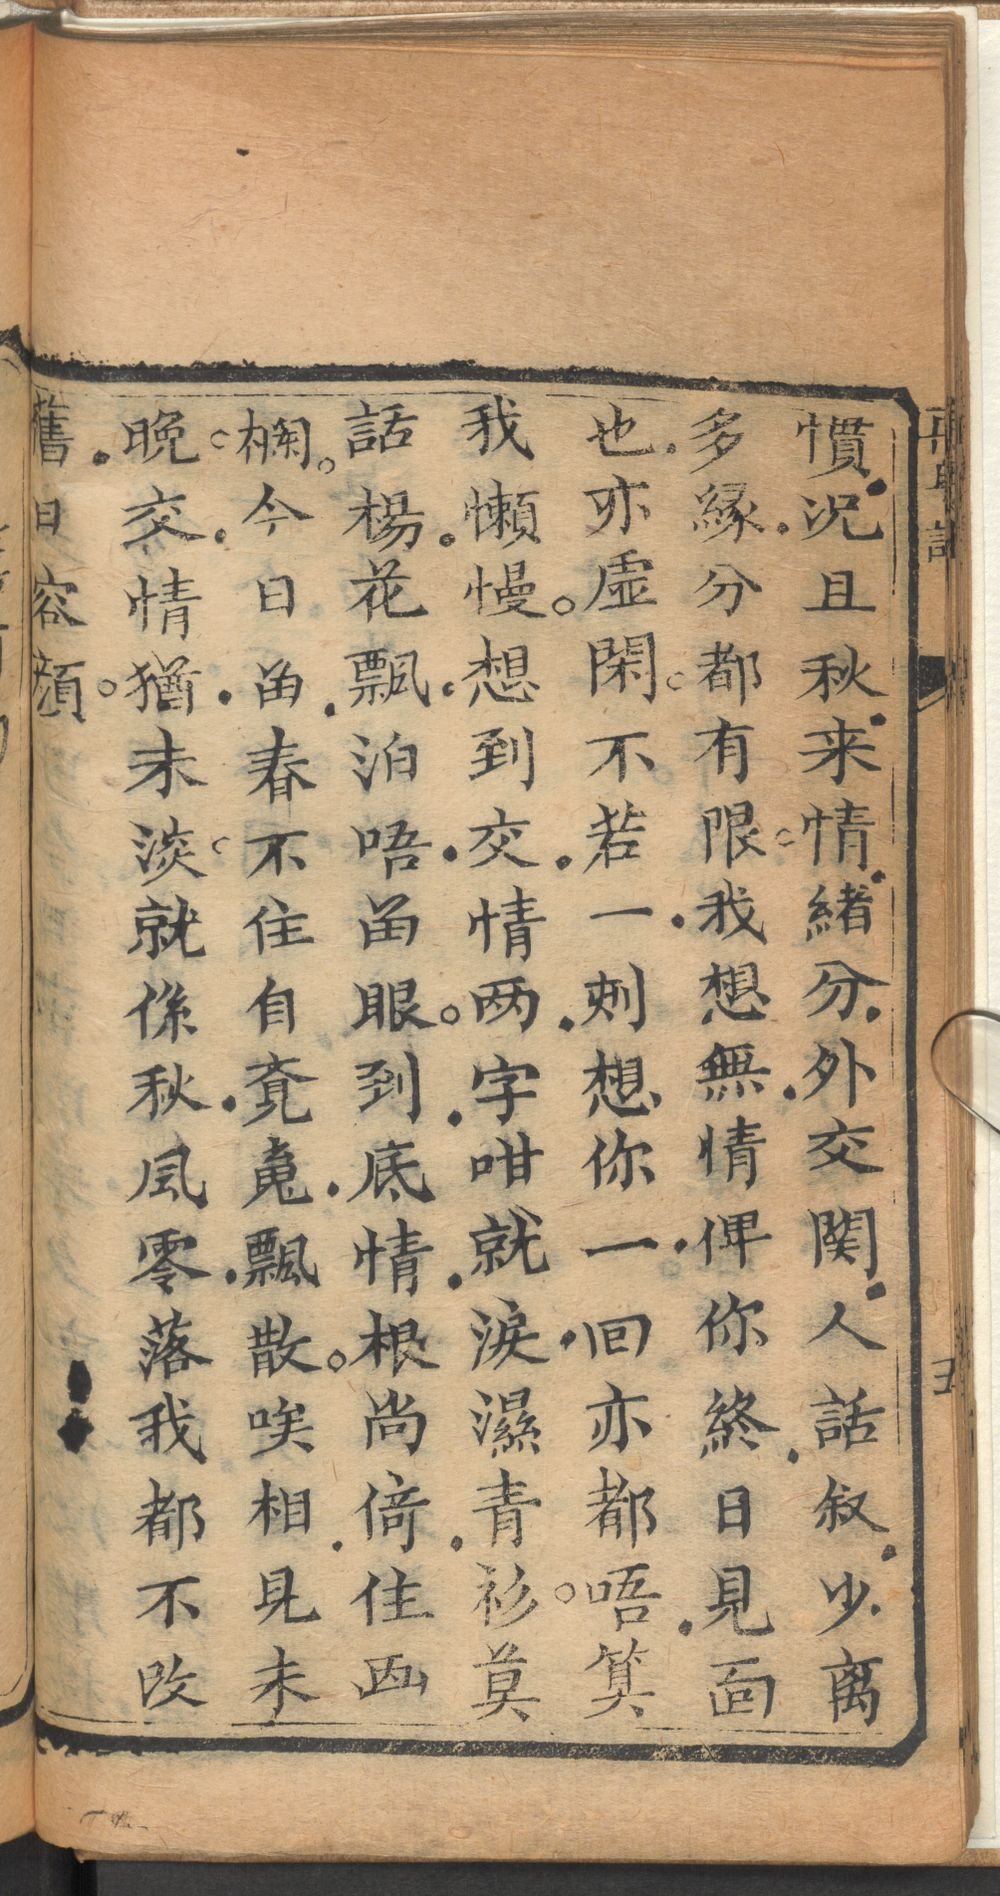 慣况且秋来情緒分外交関人話叙少离
多緣分都有限我想無情俾你終日見面
也亦虛閑不若一刻想你一回亦都唔算
我懶慢想到交情两字咁就淚濕青衫莫
話楊花飄泊唔留眼到底情根尚倚住画
欄今日留春不住自竟魂飄散唉相見未
晚交情猶未淡就係秋風零落我都不改
舊日容顔